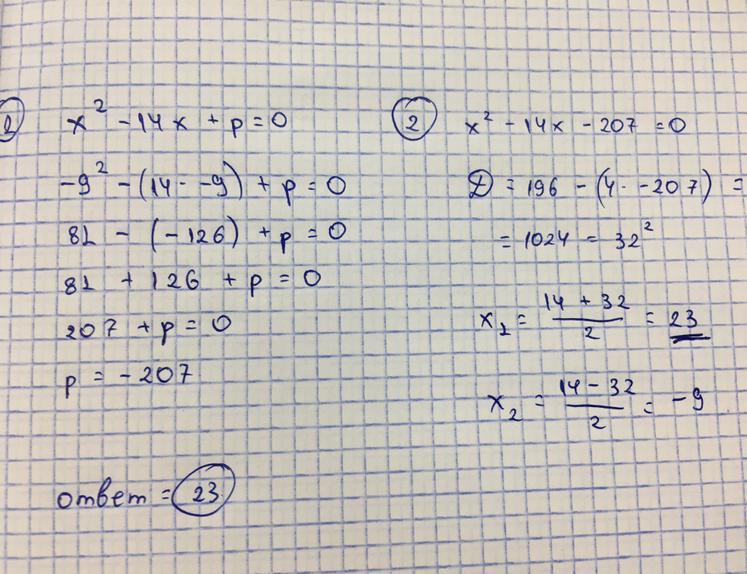 1
x² - 14x + p = 0
-9² - (14 · -9) + p = 0
81 - (-126) + p = 0
81 + 126 + p = 0
207 + p = 0
p = -207
ответ = 23
2
x² - 14x - 207 = 0
D = 196 - (4 · -207) =
= 1024 = 32²
x₁ = (14 + 32)/2 = 23
x₂ = (14 - 32)/2 = -9